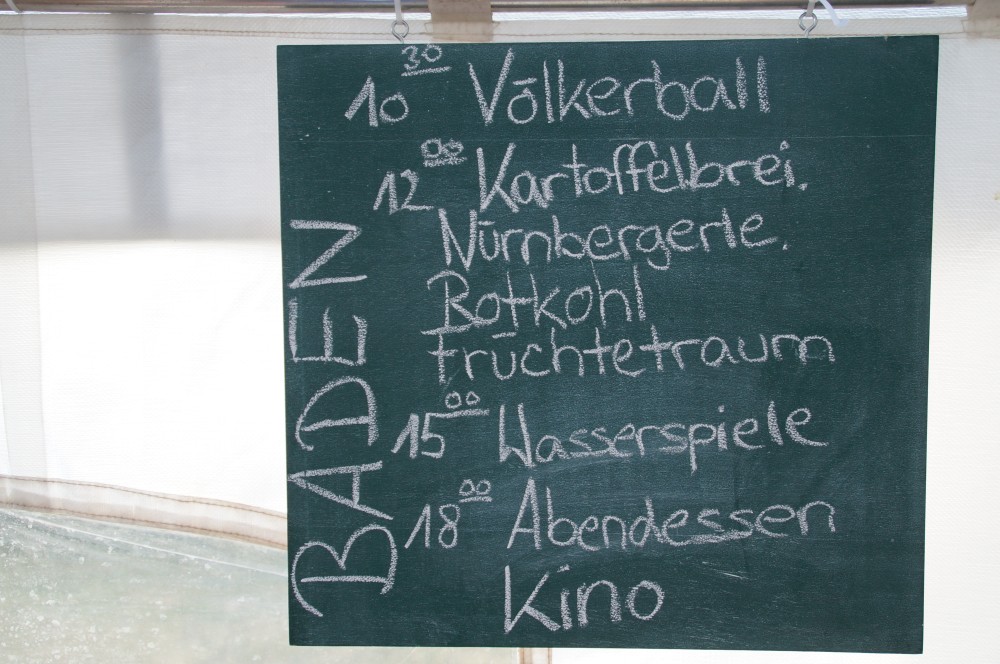 10 30 Völkerball
12 00 Kartoffelbrei.
Nürnbergerle.
Rotkohl
Früchtetraum
15 00 Wasserspiele
18 00 Abendessen
Kino
BADEN